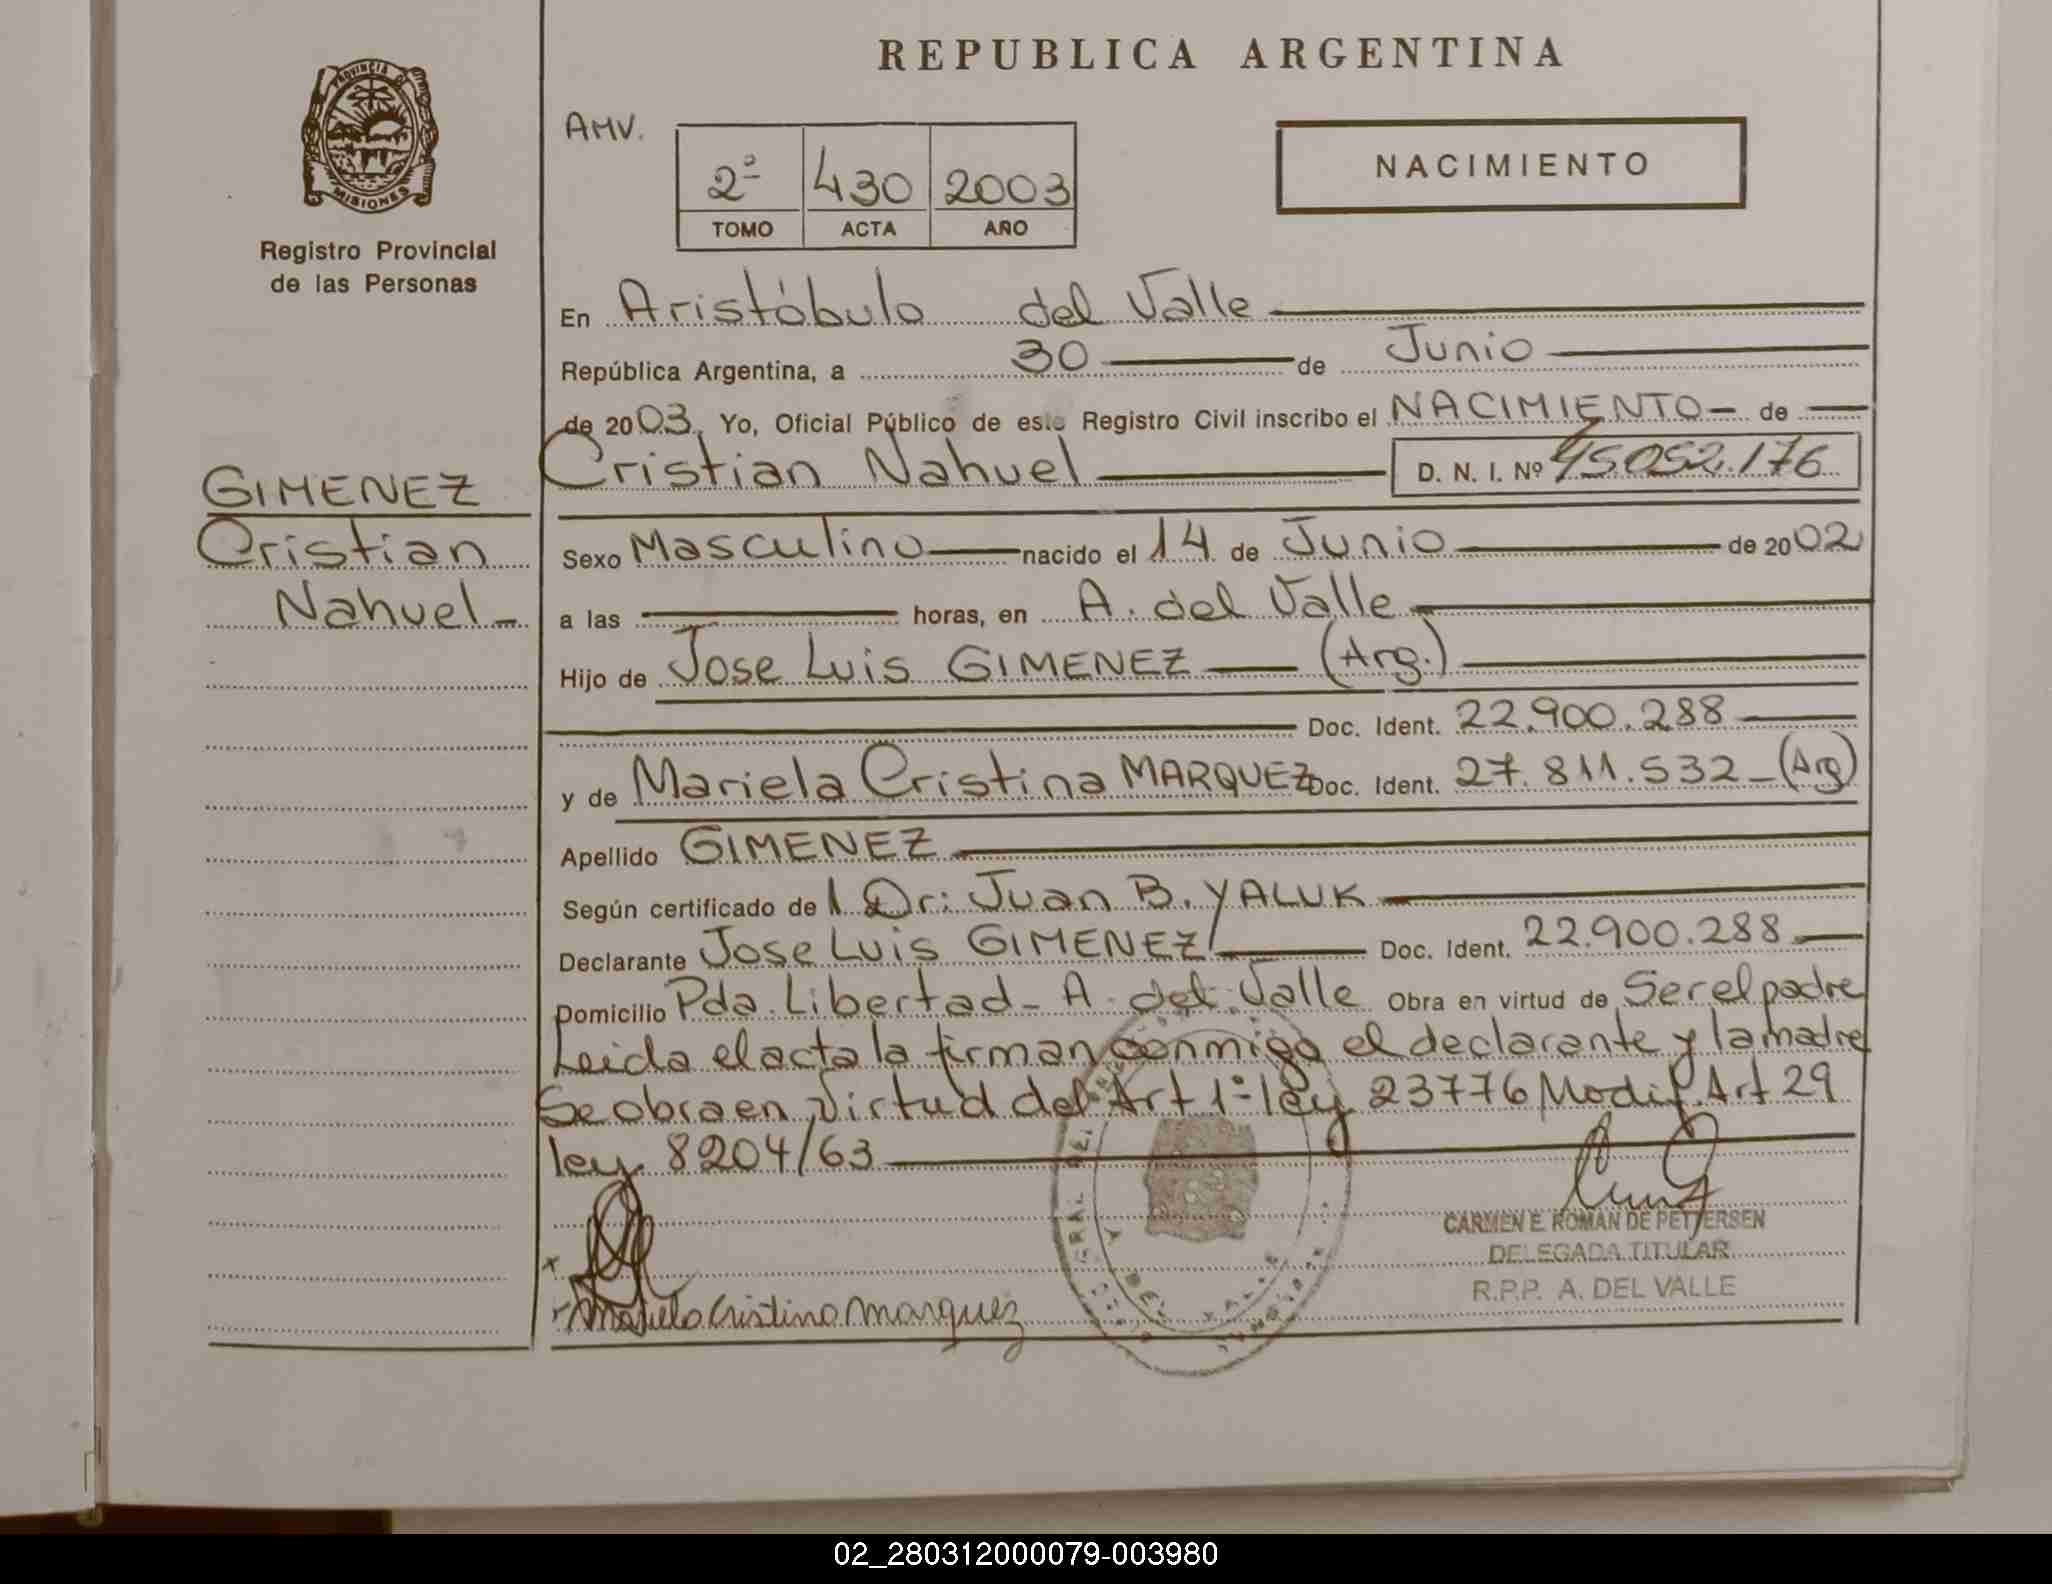 REPUBLICA ARGENTINA
PROVINCIA DE
MISIONES
Registro Provincial
de las Personas
AMV.
2º 430 2003
TOMO ACTA AÑO
NACIMIENTO
En Aristóbulo del Valle
República Argentina, a 30 de Junio
de 2003. Yo, Oficial Público de este Registro Civil inscribo el NACIMIENTO - de
Cristian Nahuel D. N. I. Nº 45.052.176
GIMENEZ
Cristian
Nahuel -
Sexo Masculino nacido el 14 de Junio de 2002
a las horas, en A. del Valle
Hijo de Jose Luis GIMENEZ (Arg.)
Doc. Ident. 22.900.288
y de Mariela Cristina MARQUEZ Doc. Ident. 27.811.532 - (Arg)
Apellido GIMENEZ
Según certificado del Dr: Juan B. YALUK
Declarante Jose Luis GIMENEZ Doc. Ident. 22.900.288
Domicilio Pda. Libertad - A. del Valle Obra en virtud de Ser el padre
Leida el acta la firman conmigo el declarante y la madre
Se obra en Virtud del Art 1º ley 23776 Modif. Art 29
ley 8204/63
CARMEN E. ROMAN DE PETTERSEN
DELEGADA TITULAR
R.P.P. A. DEL VALLE
Mariela Cristina Marquez
DEL VALLE
02_280312000079-003980